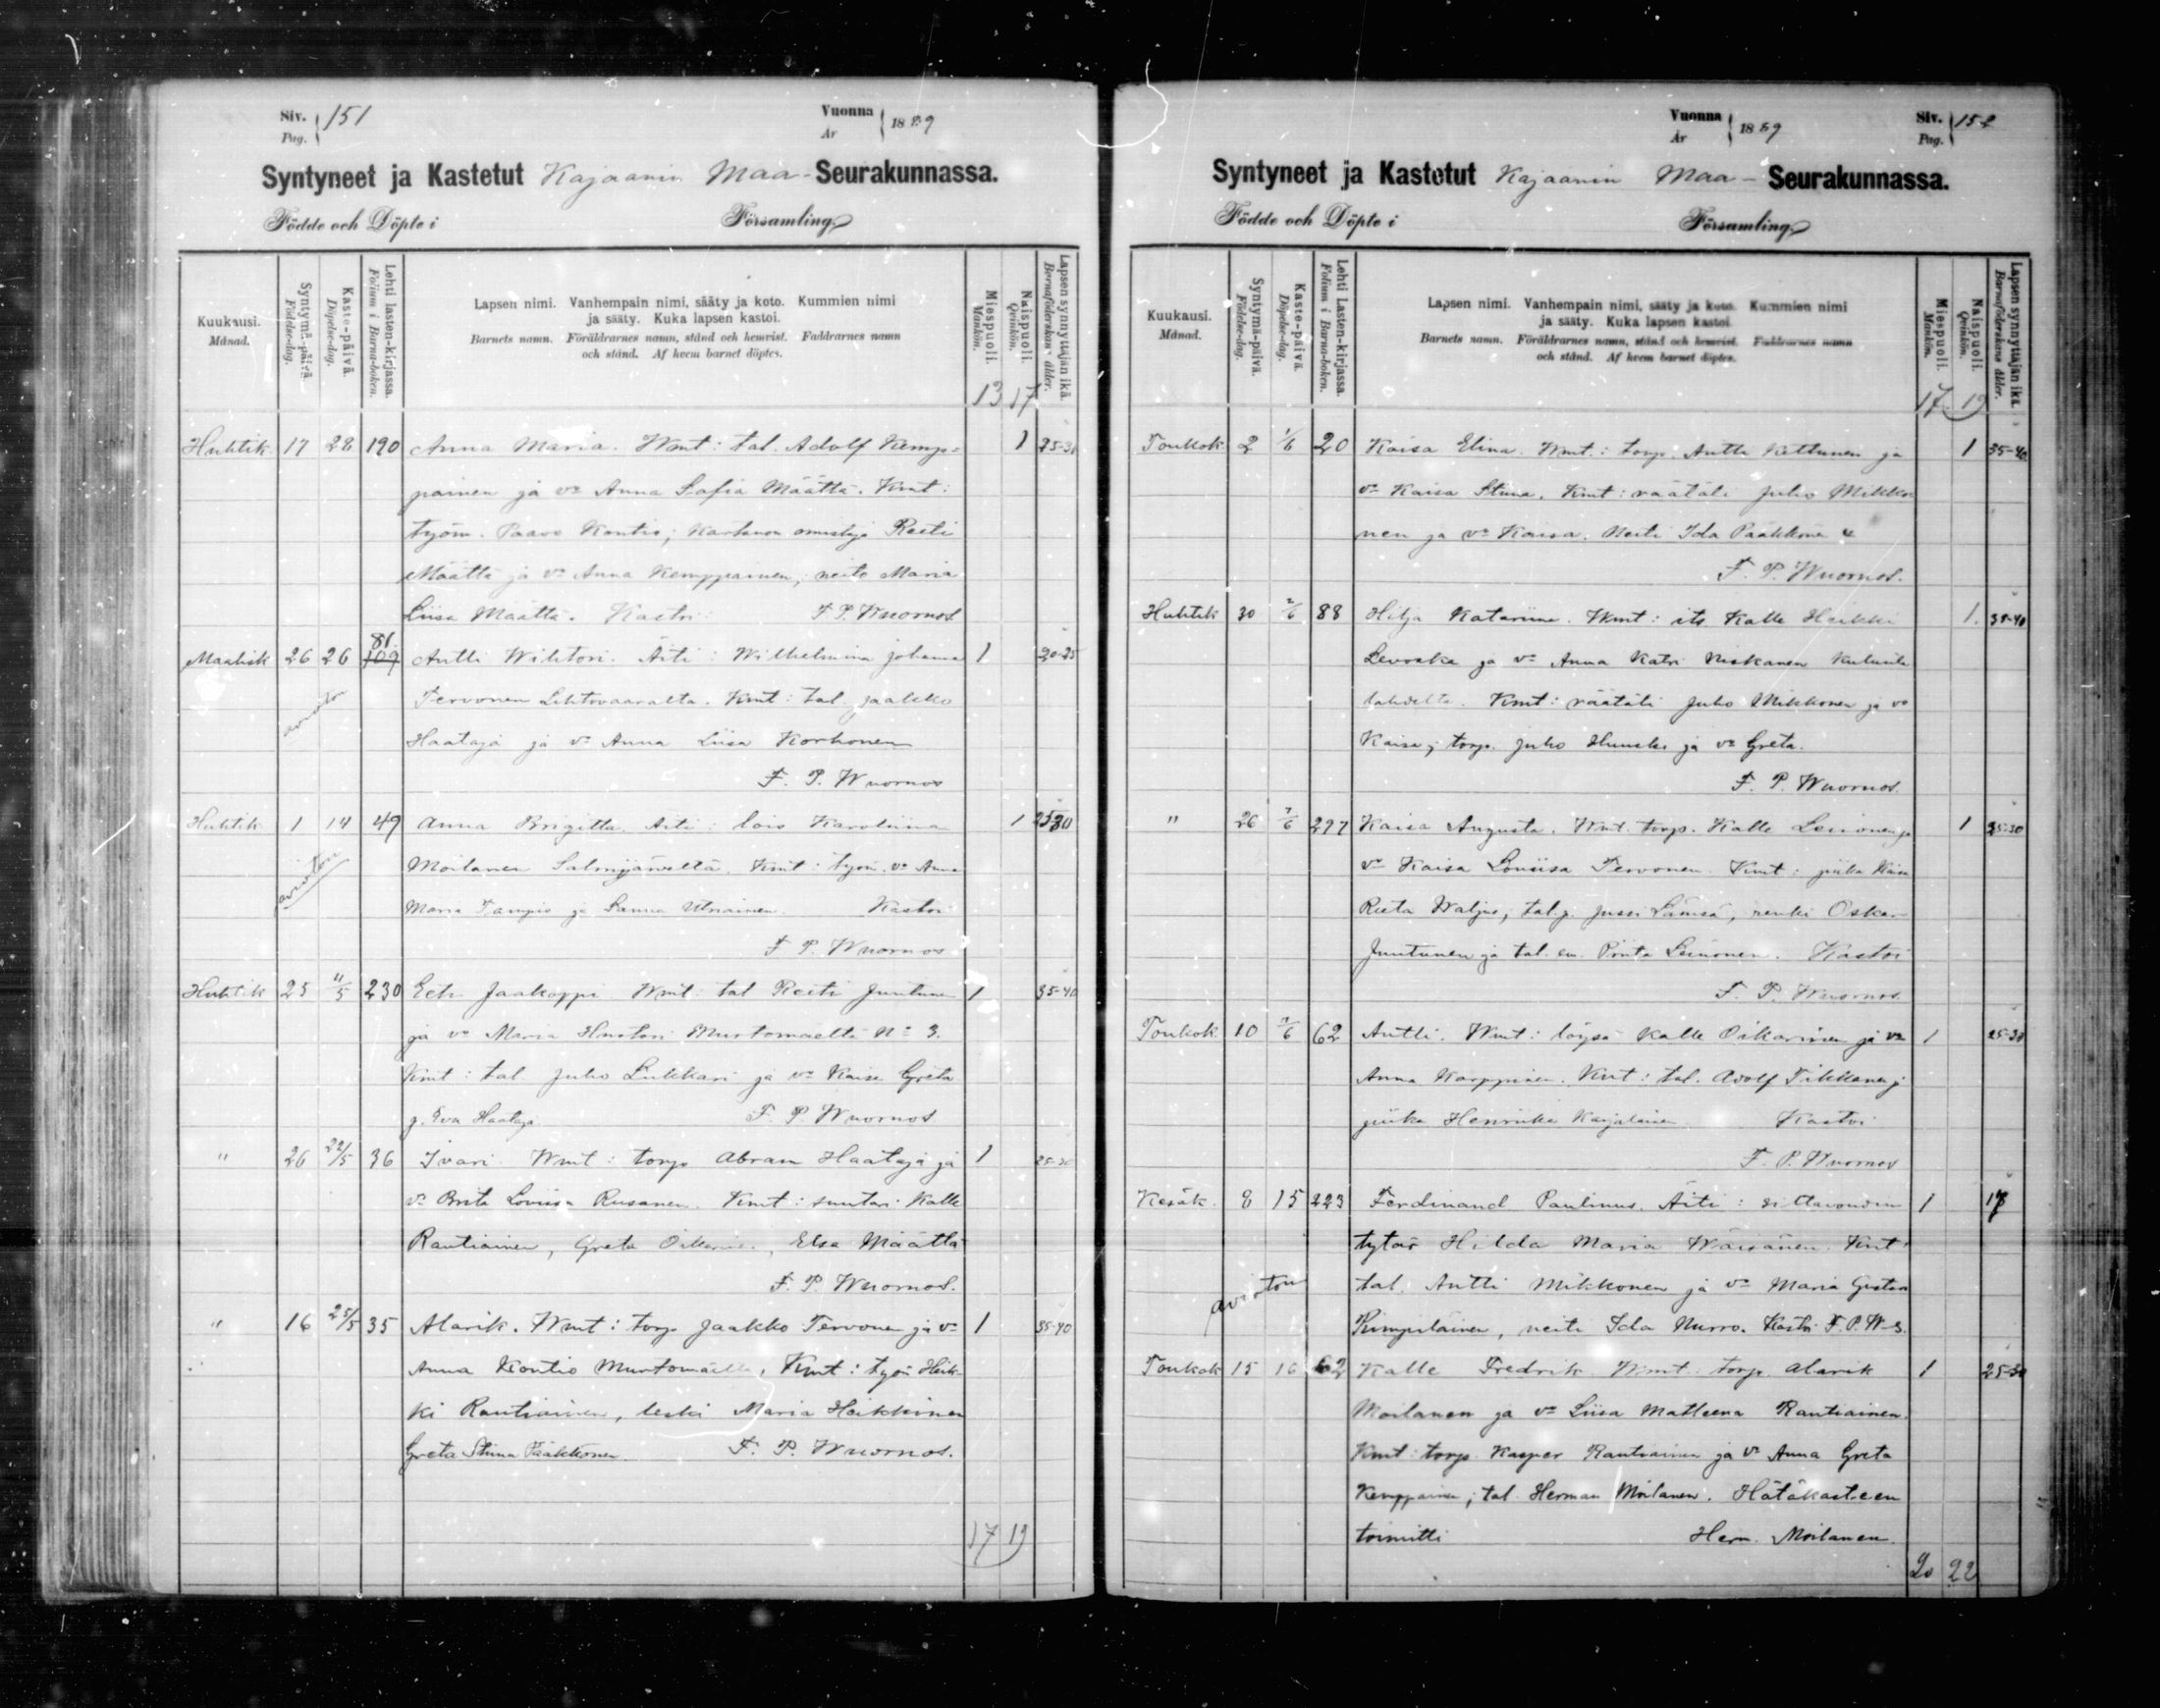 Siv. Pag. 151
Vuonna År 1889
Syntyneet ja Kastetut Kajaanin Maa-Seurakunnassa.
Födde och Döpte i Församling
Kuukausi. Månad.
Syntymä-päivä. Födelse-dag.
Kaste-päivä. Döpelse-dag.
Lehti lasten-kirjassa. Folium i Barna-boken.
Lapsen nimi. Vanhempain nimi, sääty ja koto. Kummien nimi
ja sääty. Kuka lapsen kastoi.
Barnets namn. Föräldrarnes namn, stånd och hemvist. Faddrarnes namn
och stånd. Af hvem barnet döptes.
Miespuoli. Mankön.
Naispuoli. Qvinkön.
Lapsen synnyttäjän ikä. Barnaföderskans ålder.
13 17
Huhtik 17 28 190 Anna Maria. Wmt: tal. Adolf Kemp= 1 25-30
painen ja vo Anna Sofia Määttä. Kmt:
työm. Paavo Kontio; Kartanon omistaja Reeti
Määttä ja vo Anna Kemppainen, neito Maria
Liisa Määttä. Kastoi F. P. Wuornos
81.
Maalisk 26 26 109 Antti Wihtori. Äiti: Wilhelmina Johanna 1 20-25
avioton Tervonen Lehtovaaralta. Kmt: tal. Jaakko
Haataja ja vo Anna Liisa Korhonen
F. P. Wuornos
Huhtik 1 14 49 Anna Brigitta. Äiti: lois Karoliina 1 25-30
avioton Moilanen Salmijärveltä. Kmt: työm. vo Anna
Maria Tampio ja Sanna Kastoi
F. P. Wuornos
Huhtik 25 11/5 230 Jaakoppi Wmt: tal Reeti Juntunen 1 35-40
ja vo Maria Murtomäeltä No 3.
Kmt: tal. Juho Lukkari ja vo Kaisa Greta
p. Eva Haataja F. P. Wuornos
" 26 22/5 36 Ivari. Wmt: torp Abram Haataja ja 1 25-30
vo Brita Loviisa Rusanen. Kmt: suutari Kalle
Rautiainen, Greta Oikarinen, Elsa Määttä
F. P. Wuornos.
" 16 25/5 35 Alarik. Wmt: torp Jaakko Tervonen ja vo 1 35-40
Anna Kontio Murtomäeltä, Kmt: työm Heik-
ki Rautiainen, leski Maria Heikkinen
Greta Stiina Pääkkönen. F. P. Wuornos.
17 19
Vuonna År 1889
Siv. Pag. 152
Syntyneet ja Kastetut Kajaanin Maa-Seurakunnassa.
Födde och Döpte i Församling
Kuukausi. Månad.
Syntymä-päivä. Födelse-dag.
Kaste-päivä. Döpelse-dag.
Lehti Lasten-kirjassa. Folium i Barna-boken.
Lapsen nimi. Vanhempain nimi, sääty ja koto. Kummien nimi
ja sääty. Kuka lapsen kastoi.
Barnets namn. Föräldrarnes namn, stånd och hemvist. Faddrarnes namn
och stånd. Af hvem barnet döptes.
Miespuoli. Mankön.
Naispuoli. Qvinkön.
Lapsen synnyttäjän ikä. Barnaföderskans ålder.
17 19
Toukok 2 1/6 20 Kaisa Elina. Wmt.: torp. Antti Kettunen ja 1 35-40
vo Kaisa Stiina. Kmt: räätäli Juho Mikko
nen ja vo Kaisa. Neiti Ida Pääkkönen
F. P. Wuornos.
Huhtik 30 2/6 88 Hilja Katariina. Wmt: its Kalle Heikki 1. 35-40
Levoska ja vo Anna Katri Niskanen
lahdelta. Kmt: räätäli Juho Mikkonen ja vo
Kaisa; torp. Juho Huusko ja vo Greta.
F. P. Wuornos.
" 26 7/6 297 Kaisa Augusta. Wmt. torp. Kalle Leinonen ja 1 25-30
vo Kaisa Louiisa Tervonen. Kmt: piika Kaisa
Reeta Waljus; tal.p. Jussi Lämsä, renki Oskar
Juntunen ja tal. em. Leinonen. Kastoi
F. P. Wuornos.
Toukok 10 7/6 62 Antti. Wmt: löysä Kalle Oikarinen ja vo 1 25-30
Anna Karppinen. Kmt: tal. Adolf Tikkanen ja
piika Henriika Karjalainen Kastoi
F. P. Wuornos
Kesäk. 8 15 223 Ferdinand Paulinus. Äiti: siltavoudin 1 17
tytär Hilda Maria Wäisänen. Kmt:
avioton tal. Antti Mikkonen ja vo Maria Gustava
Kimpiläinen, neiti Ida Nurro. Kastoi F. P. W-s.
Toukok 15 16 62 Kalle Fredrik Wmt: torp. Alarik 1 25-30
Moilanen ja vo Liisa Matleena Rautiainen.
Kmt: torp. Kasper Rautiainen ja vo Anna Greta
Kemppainen; tal. Herman Moilanen. Hätäkasteen
toimitti Herm. Moilanen.
20 22